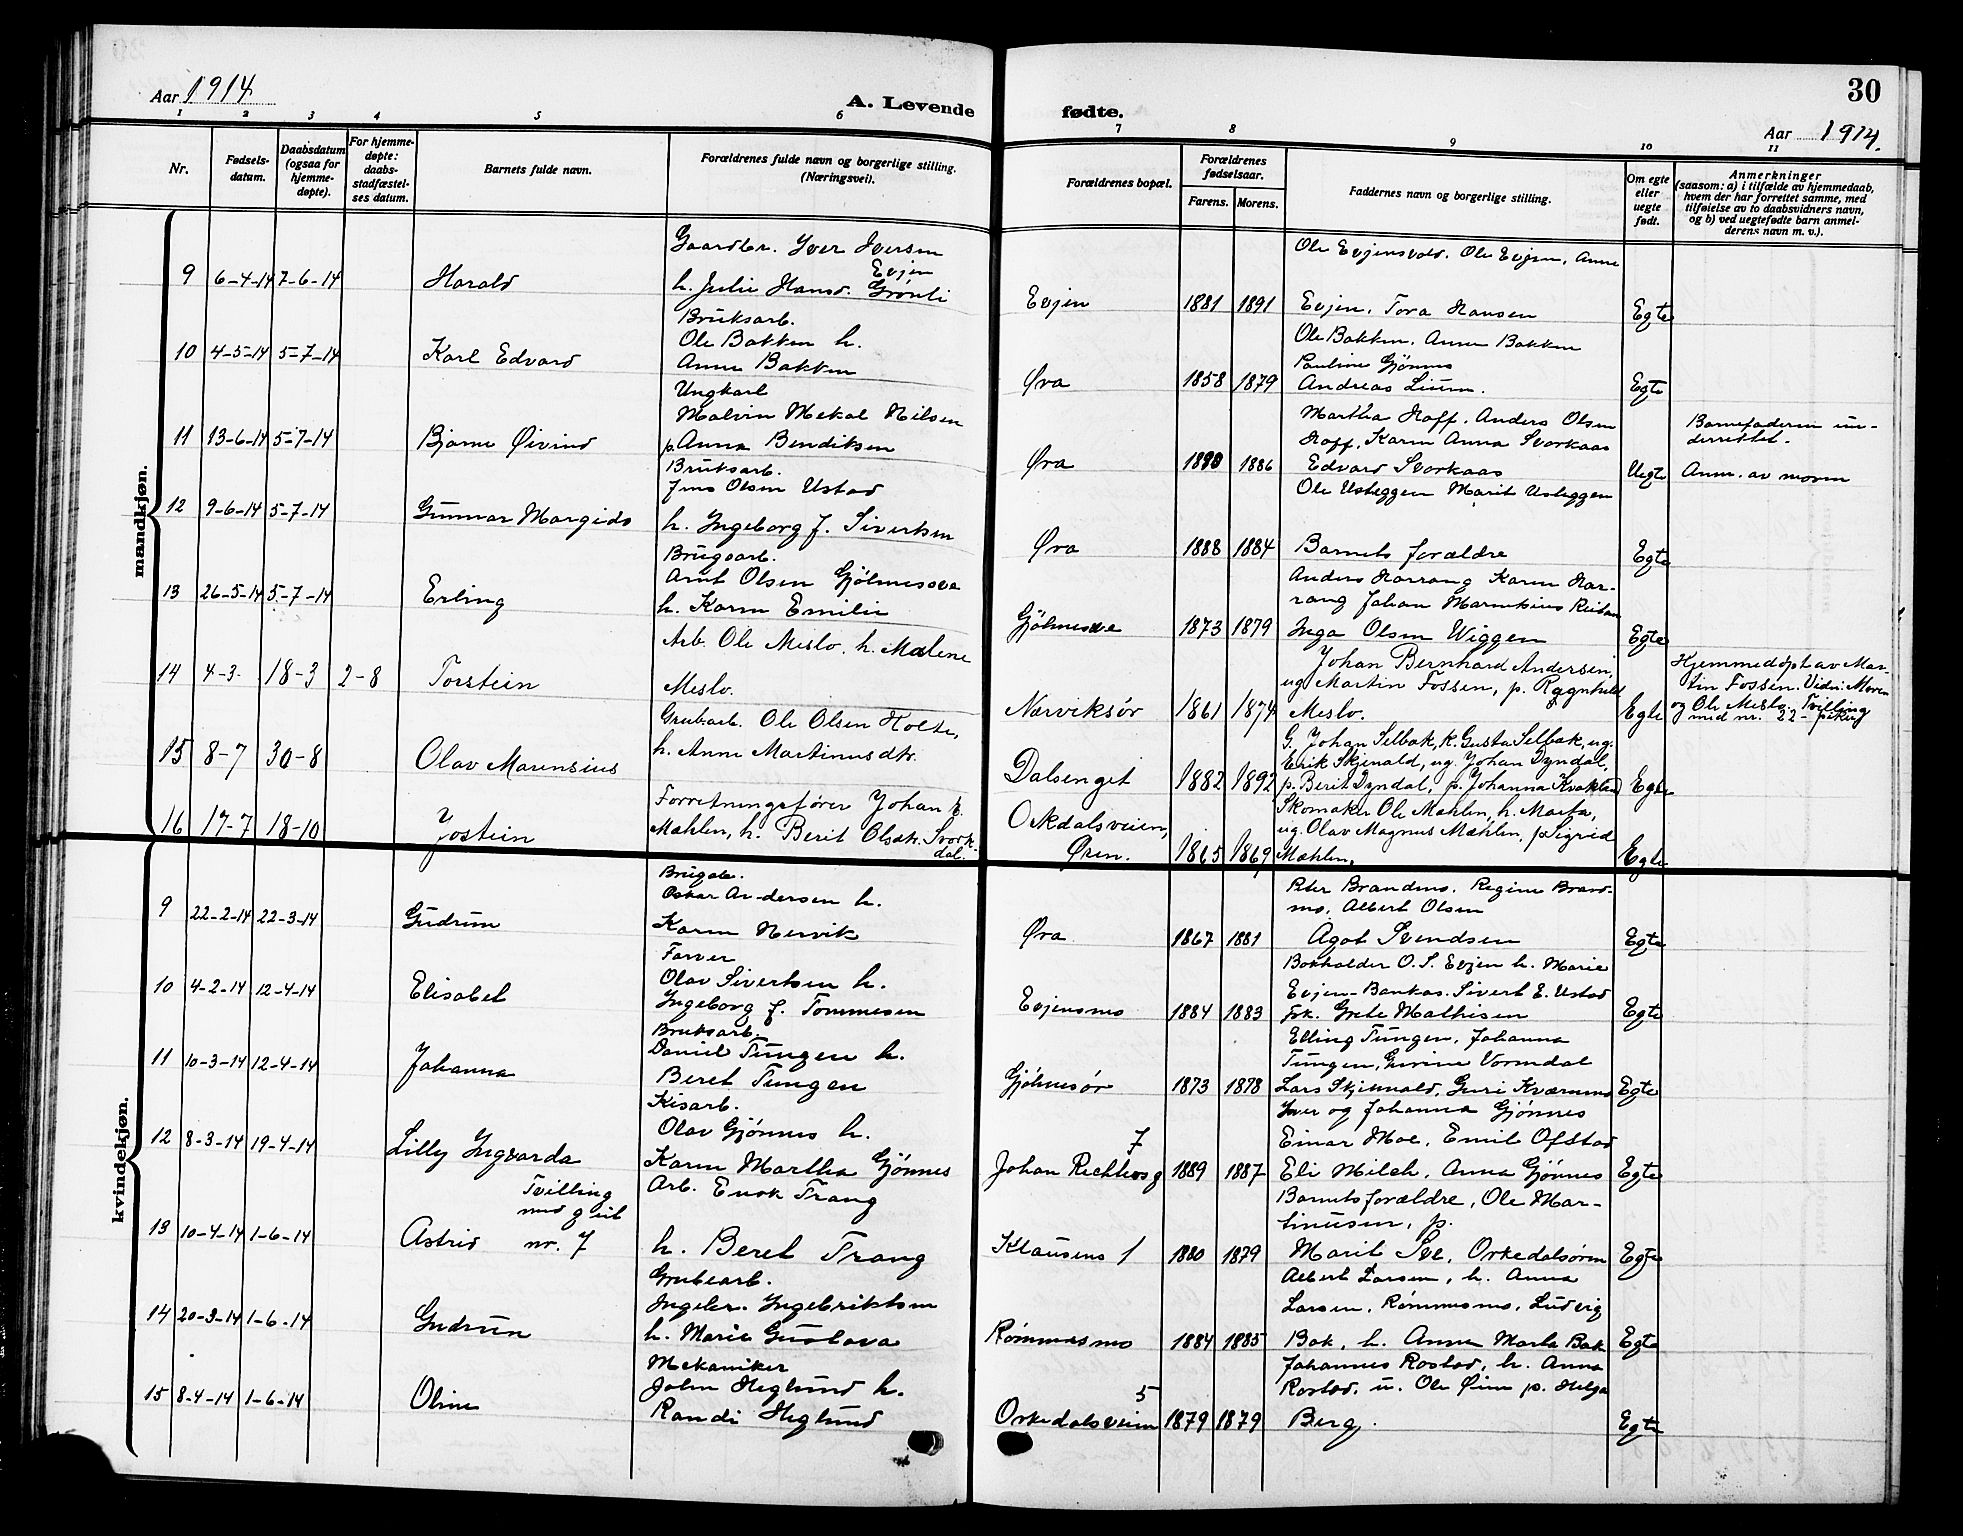 Aar 1914
A. Levende
fødte.
30
Aar 1914.
1 2 3 4 5 6 7 8 9 10 11
Nr.
Fødsels-datum.
Daabsdatum (ogsaa for hjemme-døpte).
For hjemme-døpte: daabs-stadfæstel-ses datum.
Barnets fulde navn.
Forældrenes fulde navn og borgerlige stilling. (Næringsvei).
Forældrenes bopæl.
Forældrenes fødselsaar.
Farens. Morens.
Faddernes navn og borgerlige stilling.
Om egte eller uegte født.
Anmerkninger (saasom: a) i tilfælde av hjemmedaab, hvem der har forrettet samme, med tilføielse av to daabsvidners navn, og b) ved uegtefødte barn anmel-derens navn m. v.).
mandkjøn.
9 6-4-14 7-6-14 Harald
Gaardbr. Iver Iversen
Evjen
h. Julie Hansd. Grønli
Evjen 1881 1891
Ole Evjensvold. Ole Evjen, Anne
Evjen. Tora Hansen
Egte
10 4-5-14 5-7-14 Karl Edvard
Bruksarb.
Ole Bakken h.
Anne Bakken
Øra 1858 1879
Ole Bakken. Anne Bakken
Pauline Gjønnes
Andreas Lium.
Egte
11 13-6-14 5-7-14 Bjarne Øivind
Ungkarl
Malvin Mekal Nilsen
p. Anna Bendiksen
Øra 1890 1886
Martha Hoff. Anders Olsen
Hoff, Karen Anna Svorkaas
Edvard Svorkaas
Uegte
Barnefaderen un-
derrettet.
Anm. av moren
12 9-6-14 5-7-14 Gunnar Margido
Bruksarb.
Jens Olsen Ustad
h. Ingeborg f. Sivertsen
Øra 1888 1884
Ole Usteggen Marit Usteggen
Barnets forældre
Egte
13 26-5-14 5-7-14 Erling
Brugsarb.
Arnt Olsen Gjølmesøve
h. Karen Emilie
Gjølmesøve 1873 1879
Anders Harrang Karen Har-
rang Johan Marentius Reitan
Inga Olsen Wiggen
Egte
14 4-3- 18-3 2-8 Torstein
Arb. Ole Meslo. h. Malene
Meslo.
Nærviksør 1861 1874
Johan Bernhard Andersen,
ug Martin Fossen, p. Ragnhild
Meslo.
Egte
Hjemmedøpt av Mar-
tin Fossen. Vidn: Moren
og Ole Meslo. Tvilling
med nr. 22 - piker
15 8-7 30-8 Olav Marensius
Grubarb. Ole Olsen Holte,
h. Anne Martinusdtr.
Dalsenget 1882 1892
G. Johan Selbak, k. Gusta Selbak, ug.
Erik Skjenald, ug. Johan Dyndal,
p. Berit Dyndal, p. Johanna
Egte
16 17-7 18-10 Jostein
Forretningsfører Johan
Mæhlen, h. Berit Olsdtr. Svork-
dal.
Orkdalsveien,
Øren. 1865 1869
Skomaker Ole Mæhlen, h. Marta,
ug. Olav Magnus Mæhlen, p. Sigrid
Mæhlen,
Egte
kvindekjøn.
9 22-2-14 22-3-14 Gudrun
Brugsb.
Oskar Andersen h.
Karen Nervik
Øra 1867 1881
Peter Brandmo. Regine Brand-
mo, Albert Olsen
Agot Svendsen
Egte
10 4-2-14 12-4-14 Elisabet
Farver
Olav Sivertsen h.
Ingeborg f. Tommesen
Evjensmo 1884 1883
Bokholder O. S. Evjen h. Marie
Evjen-Bankas. Sivert E. Ustad
frk. Grete Mathisen
Egte
11 10-3-14 12-4-14 Johanna
Bruksarb.
Daniel Tungen h.
Beret Tungen
Gjølmesør 1873 1878
Elling Tungen, Johanna
Tungen, Gurine Vormdal
Lars Skjenald, Guri Kværnmo
Egte
12 8-3-14 19-4-14 Lilly Ingvarda
Kisarb.
Olav Gjønnes h.
Karen Martha Gjønnes
7
Johan Richtersg 1889 1887
Iver og Johanna Gjønnes
Einar Moe, Emil Ofstad
Eli Milch, Anna Gjønnes
Egte
13 10-4-14 1-6-14 Astrid
Tvilling
med gut
nr. 7
Arb. Enok Trang
h. Beret Trang
Klausens 1 1880 1879
Barnets forældre, Ole Mar-
tinusen, p.
Marit Sve, Orkedalsøren
Egte
14 20-3-14 1-6-14 Gudrun
Grubearb.
Ingebr. Ingebriktsen
h. Marie Gustava
Rømmesmo 1884 1885
Albert Larsen, h. Anna
Larsen, Rømmesmo, Ludvig
Bak, h. Anne Marta Bak
Egte
15 8-4-14 1-6-14 Oline
Mekaniker
John Heglund h.
Randi Heglund
5
Orkedalsveien 1879 1879
Johannes Rostad, h. Anna
Rostad. u. Ole Øien p. Helga
Berg.
Egte